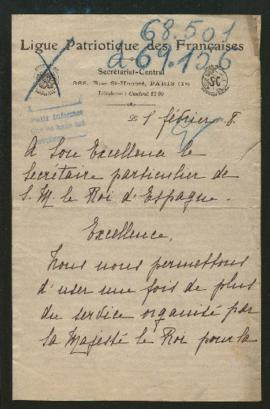 68.501
a 69.156
Ligue Patriotique des Françaises
Secrétariat-Central
Rue St-Honoré, PARIS (1er)
Téléphone : Central
SC
1 février 8.
A Son Excellence le
Secrétaire particulier de
S. M. le Roi d'Espagne.
Excellence,
Nous nous permettons
d'user une fois de plus
du service organisé par
Sa Majesté le Roi pour la